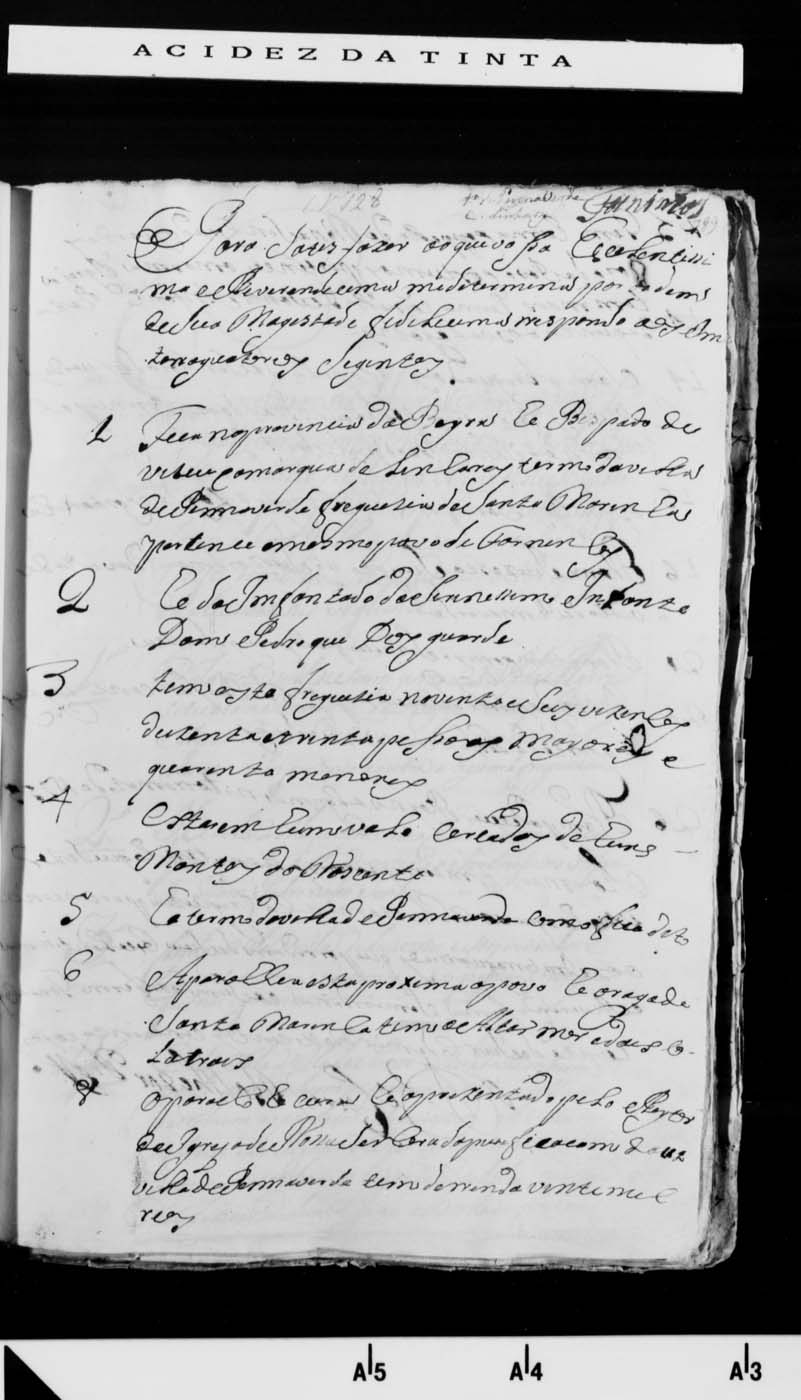 ACIDEZ DA TINTA
Para Satisfazer ao que vossa Excelentissi
ma e Reverendecema me determina por ordem
de Sua Magestade fidelicema respondo aos Em
terroguatorios Segintes
1 Fica na provincia da Beyra he Bispado de
Viseu comarqua de Linhares termo da villa
de Pennaverde freguesia de Santa Marinha
pertence o mesmo povo de Forninhos
2 He do Imfantado do Serinnissimo Infante
Dom Pedro que Deos guarde
3 tem esta freguesia noventa e seis vezinhos
duzentas e trinta pessoas mayores e
quarenta menores
4 Esta em hum valle cercado de huns
Montes do Nascente
5 he termo da villa de Pennaverde como fica dito
6 A parochia esta proxima ao povo he oraga de
Santa Marinha tem o Altar mor e dous co
latrais
8 o parocho he cura he aprezentado pello Reytor
da Igreja de Nossa Senhora da da
villa de Pennaverde tem de renda vinte mil
reis
A5 A4 A3